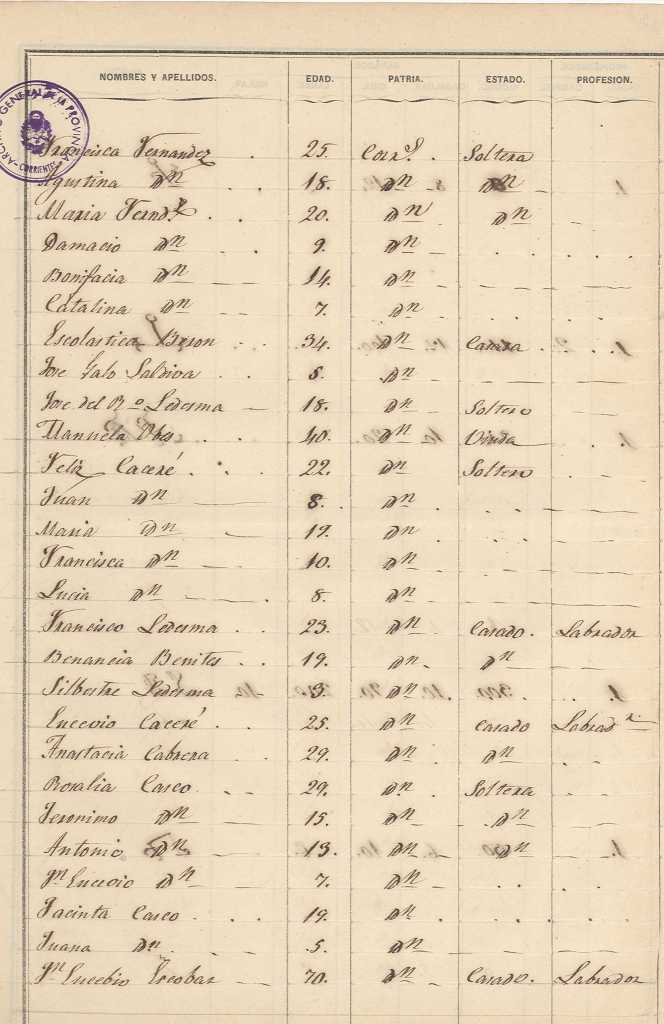 NOMBRES Y APELLIDOS. EDAD. PATRIA. ESTADO. PROFESION.
ARCHIVO GENERAL DE LA PROVINCIA - CORRIENTES -
Francisca Fernandez 25. Corr.s Soltera
Agustina Dn 18. Dn Dn
Maria Fernd.z 20. Dn Dn
Damacio Dn 9. Dn
Bonifacia Dn 14. Dn
Catalina Dn 7. Dn
Escolastica 34. Dn Casada
Jose Galo Saldiva 5. Dn
Jose del Ro Ledesma 18. Dn Soltero
Manuela 40. Dn Viuda
Feliz Caceré 22. Dn Soltero
Juan Dn 8. Dn
Maria Dn 19. Dn
Francisca Dn 10. Dn
Lucia Dn 8. Dn
Francisco Ledesma 23. Dn Casado. Labrador
Benancia Benites 19. Dn Dn
Silbestre Ledesma 3. Dn
Eucevio Caceré 25. Dn Casado Labrad.r
Anastacia Cabrera 29. Dn Dn
Rosalia Casco 29. Dn Soltera
Jeronimo Dn 15. Dn Dn
Antonio Dn 13. Dn Dn
Jn Eucevio Dn 7. Dn
Jacinta Casco 19. Dn
Juana Dn 5. Dn
Jn Eucebio Escobar 70. Dn Casado. Labrador